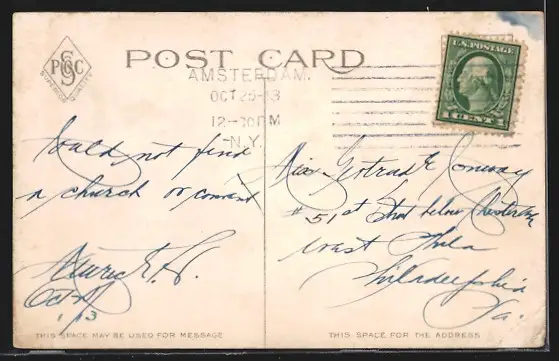 PSC
SUPERIOR QUALITY
POST CARD
U.S. POSTAGE
1 CENT 1
AMSTERDAM.
OCT 25-13
12-30 PM
N.Y.
Could not find
a church or convent
Oct
13
Miss Gertrude Conway
# 51 st Street below Chester Ave
West Phila
Philadelphia
Pa.
THIS SPACE MAY BE USED FOR MESSAGE
THIS SPACE FOR THE ADDRESS